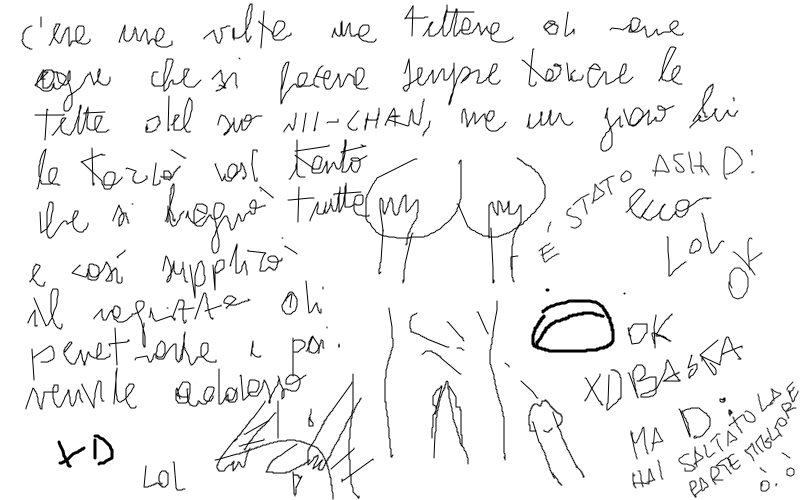 c'era una volta una tettona di nome
che si faceva sempre toccare le
tette dal suo NII-CHAN, ma un giorno lui
le toccò così tanto
che si bagnò tutta
e così supplicò
il ragazzo di
penetrarla e poi
venirle addosso
XD
LOL
È STATO ASH D:
ecco
LOL
OK
OK
XD BASTA
MA D:
HAI SALTATO LA
PARTE MIGLIORE